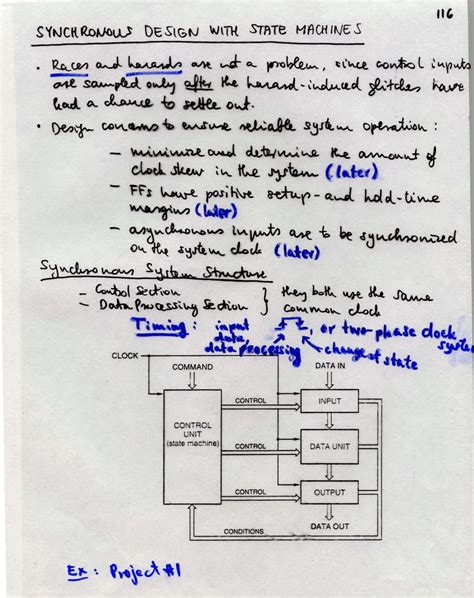 116
SYNCHRONOUS DESIGN WITH STATE MACHINES
• Races and hazards are not a problem, since control inputs
are sampled only after the hazard-induced glitches have
had a chance to settle out.
• Design concerns to ensure reliable system operation :
— minimize and determine the amount of
clock skew in the system (later)
— FFs have positive setup- and hold-time
margins (later)
— asynchronous inputs are to be synchronized
on the system clock (later)
Synchronous System Structure
— Control Section
— Data Processing Section } they both use the same
common clock
Timing : input
data,
data processing
, or two-phase clock
system
change of state
CLOCK
COMMAND
DATA IN
CONTROL
INPUT
CONTROL
UNIT
(state machine)
CONTROL
DATA UNIT
CONTROL
OUTPUT
CONDITIONS
DATA OUT
Ex : Project #1